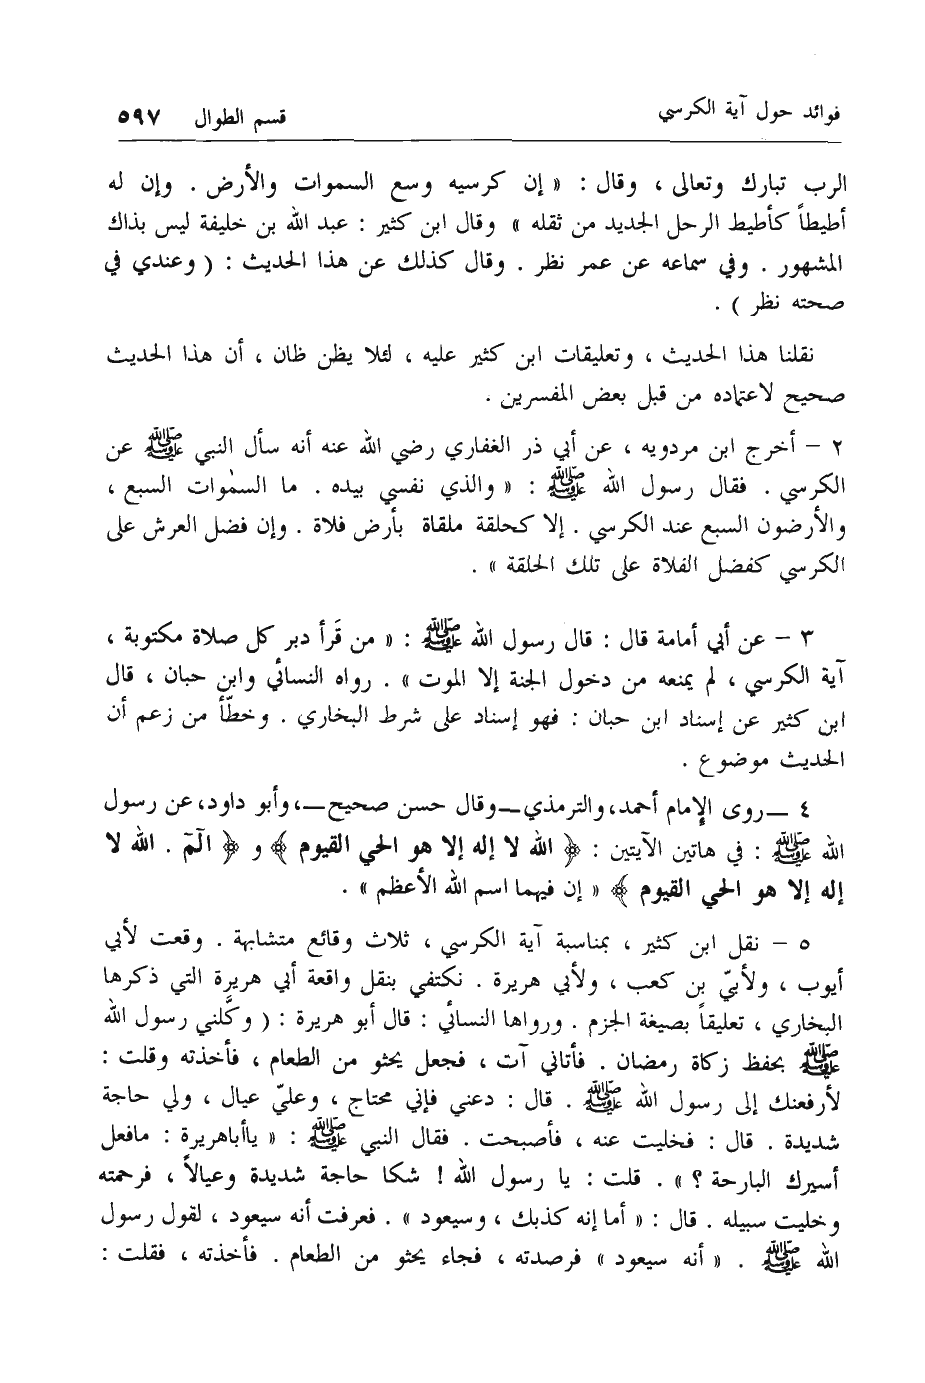 فوائد حول آية الكرسي
قسم الطوال ٥٩٧
الرب تبارك وتعالى ، وقال : « إن كرسيه وسع السموات والأرض . وإن له
أطيطاً كأطيط الرحل الجديد من ثقله » وقال ابن كثير : عبد الله بن خليفة ليس بذاك
المشهور . وفي سماعه عن عمر نظر . وقال كذلك عن هذا الحديث : ( وعندي في
صحته نظر ) .
نقلنا هذا الحديث ، وتعليقات ابن كثير عليه ، لئلا يظن ظان ، أن هذا الحديث
صحيح لاعتماده من قبل بعض المفسرين .
٢ – أخرج ابن مردويه ، عن أبي ذر الغفاري رضي الله عنه أنه سأل النبي ﷺ عن
الكرسي . فقال رسول الله ﷺ : « والذي نفسي بيده . ما السمٰوات السبع ،
والأرضون السبع عند الكرسي . إلا كحلقة ملقاة بأرض فلاة . وإن فضل العرش على
الكرسي كفضل الفلاة على تلك الحلقة » .
٣ – عن أبي أمامة قال : قال رسول الله ﷺ : « من قَرأ دبر كل صلاة مكتوبة ،
آية الكرسي ، لم يمنعه من دخول الجنة إلا الموت » . رواه النسائي وابن حبان ، قال
ابن كثير عن إسناد ابن حبان : فهو إسناد على شرط البخاري . وخطّأ من زعم أن
الحديث موضوع .
٤ – روى الإمام أحمد، والترمذي – وقال حسن صحيح –، وأبو داود، عن رسول
الله ﷺ : في هاتين الآيتين : ﴿ الله لا إله إلا هو الحي القيوم ﴾ و ﴿ الٓمٓ . الله لا
إله إلا هو الحي القيوم ﴾ « إن فيهما اسم الله الأعظم » .
٥ – نقل ابن كثير ، بمناسبة آية الكرسي ، ثلاث وقائع متشابهة . وقعت لأبي
أيوب ، ولأبيّ بن كعب ، ولأبي هريرة . نكتفي بنقل واقعة أبي هريرة التي ذكرها
البخاري ، تعليقاً بصيغة الجزم . ورواها النسائي : قال أبو هريرة : ( وكَّلني رسول الله
ﷺ بحفظ زكاة رمضان . فأتاني آت ، فجعل يحثو من الطعام ، فأخذته وقلت :
لأرفعنك إلى رسول الله ﷺ . قال : دعني فإني محتاج ، وعليّ عيال ، ولي حاجة
شديدة . قال : فخليت عنه ، فأصبحت . فقال النبي ﷺ : « ياأباهريرة : مافعل
أسيرك البارحة ؟ » . قلت : يا رسول الله ! شكا حاجة شديدة وعيالاً ، فرحمته
وخليت سبيله . قال : « أما إنه كذبك ، وسيعود » . فعرفت أنه سيعود ، لقول رسول
الله ﷺ . « أنه سيعود » فرصدته ، فجاء يحثو من الطعام . فأخذته ، فقلت :